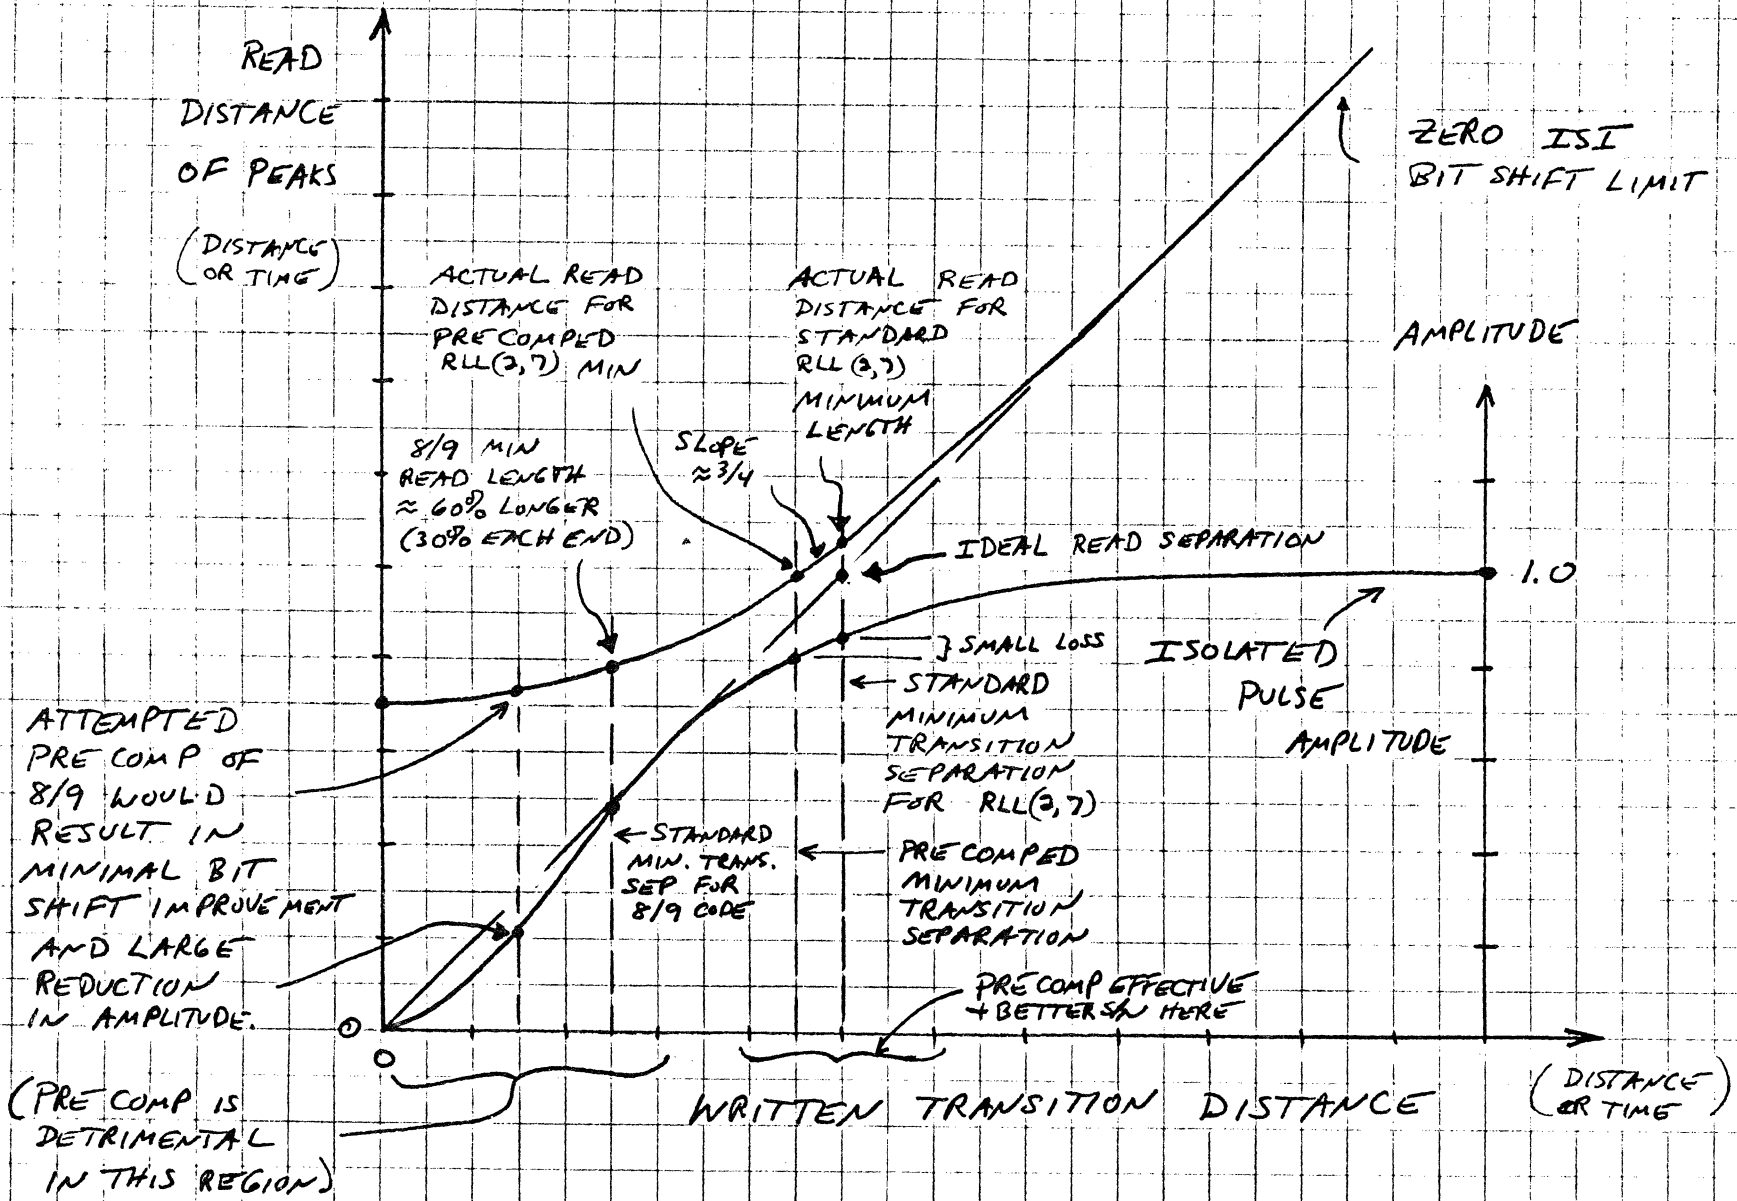 READ
DISTANCE
OF PEAKS
(DISTANCE
OR TIME)
ACTUAL READ
DISTANCE FOR
PRECOMPED
RLL(2,7) MIN
ACTUAL READ
DISTANCE FOR
STANDARD
RLL(2,7)
MINIMUM
LENGTH
ZERO ISI
BIT SHIFT LIMIT
AMPLITUDE
8/9 MIN
READ LENGTH
≈ 60% LONGER
(30% EACH END)
SLOPE
≈ 3/4
IDEAL READ SEPARATION
1.0
} SMALL LOSS
ISOLATED
PULSE
AMPLITUDE
STANDARD
MINIMUM
TRANSITION
SEPARATION
FOR RLL(2,7)
ATTEMPTED
PRECOMP OF
8/9 WOULD
RESULT IN
MINIMAL BIT
SHIFT IMPROVEMENT
AND LARGE
REDUCTION
IN AMPLITUDE.
STANDARD
MIN. TRANS.
SEP FOR
8/9 CODE
PRECOMPED
MINIMUM
TRANSITION
SEPARATION
PRECOMP EFFECTIVE
+ BETTER S/N HERE
0
0
WRITTEN TRANSITION DISTANCE
(DISTANCE
OR TIME)
(PRECOMP IS
DETRIMENTAL
IN THIS REGION)